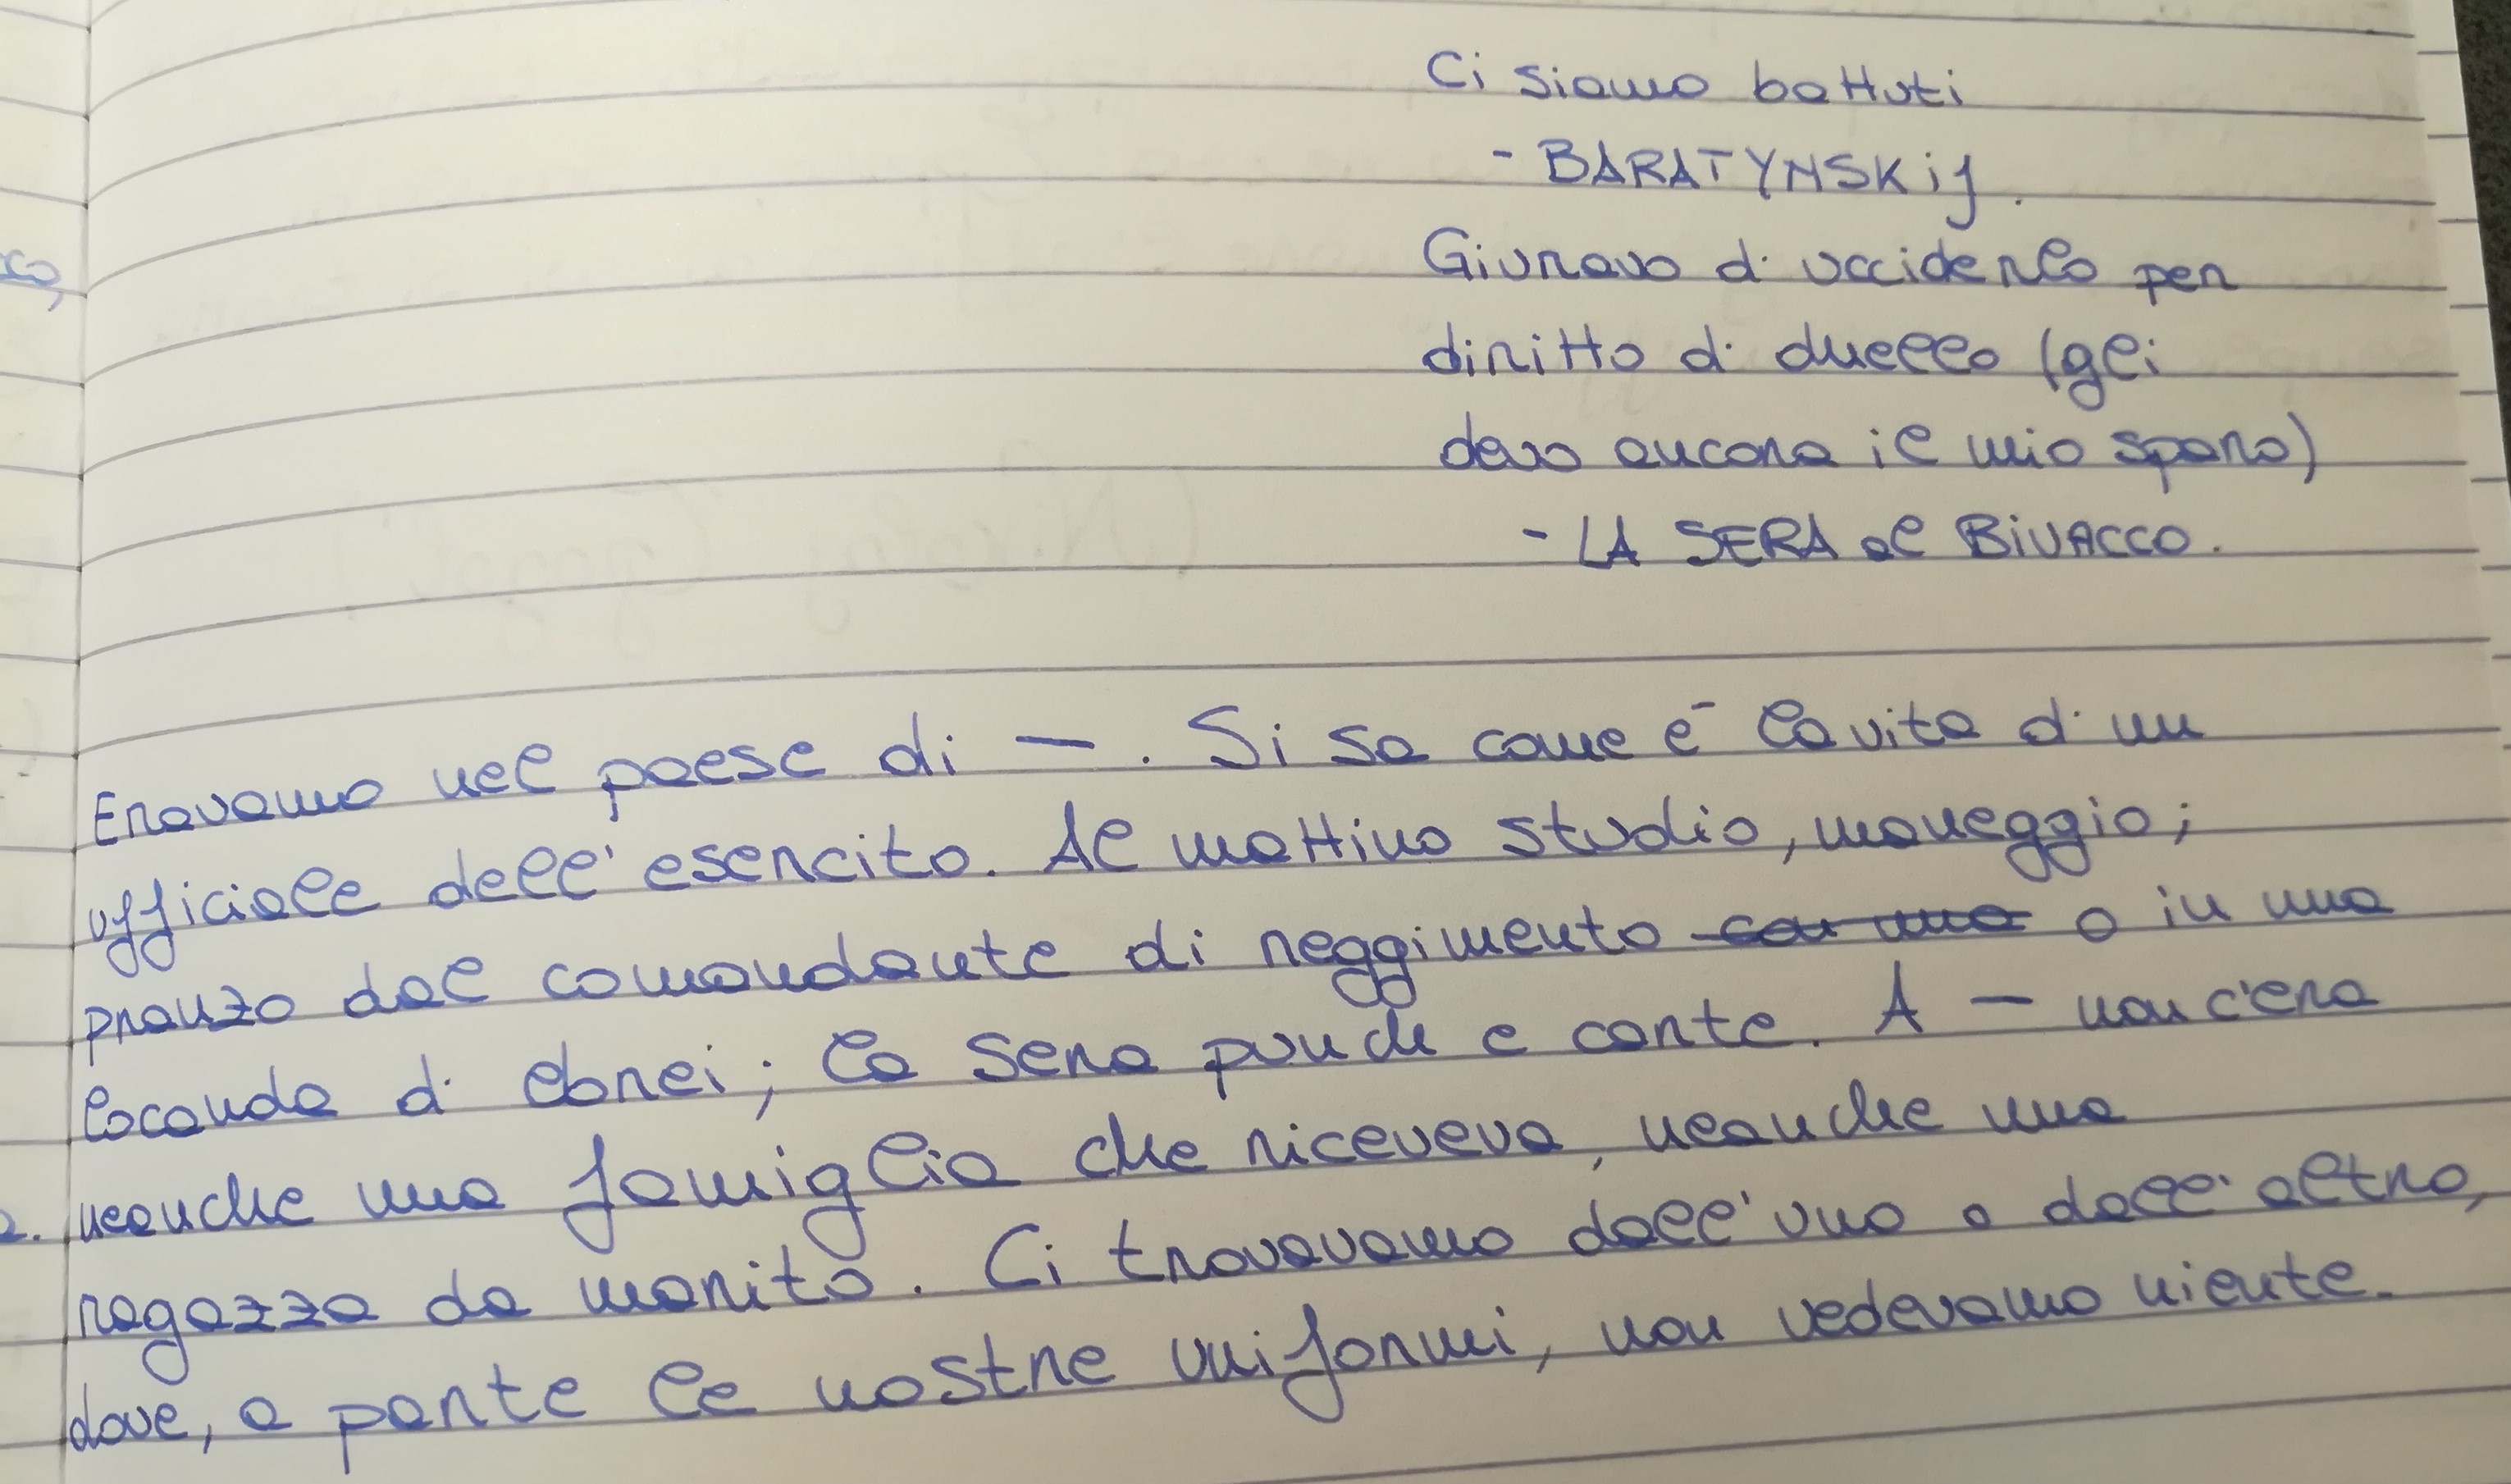 Ci siamo battuti
- BARATYNSKij.
Giuravo di ucciderlo per
diritto di duello (gli
devo ancora il mio sparo)
- LA SERA al BiVACCO.
Eravamo nel paese di — . Si sa come è la vita di un
co,
ufficiale dell'esercito. Al mattino studio, maneggio;
pranzo dal comandante di reggimento con una o in una
locanda di ebrei; la sera punch e carte. A — non c'era
neanche una famiglia che riceveva, neanche una
ragazza da marito. Ci trovavamo dall'uno o dall'altro,
dove, a parte le nostre uniformi, non vedevamo niente.